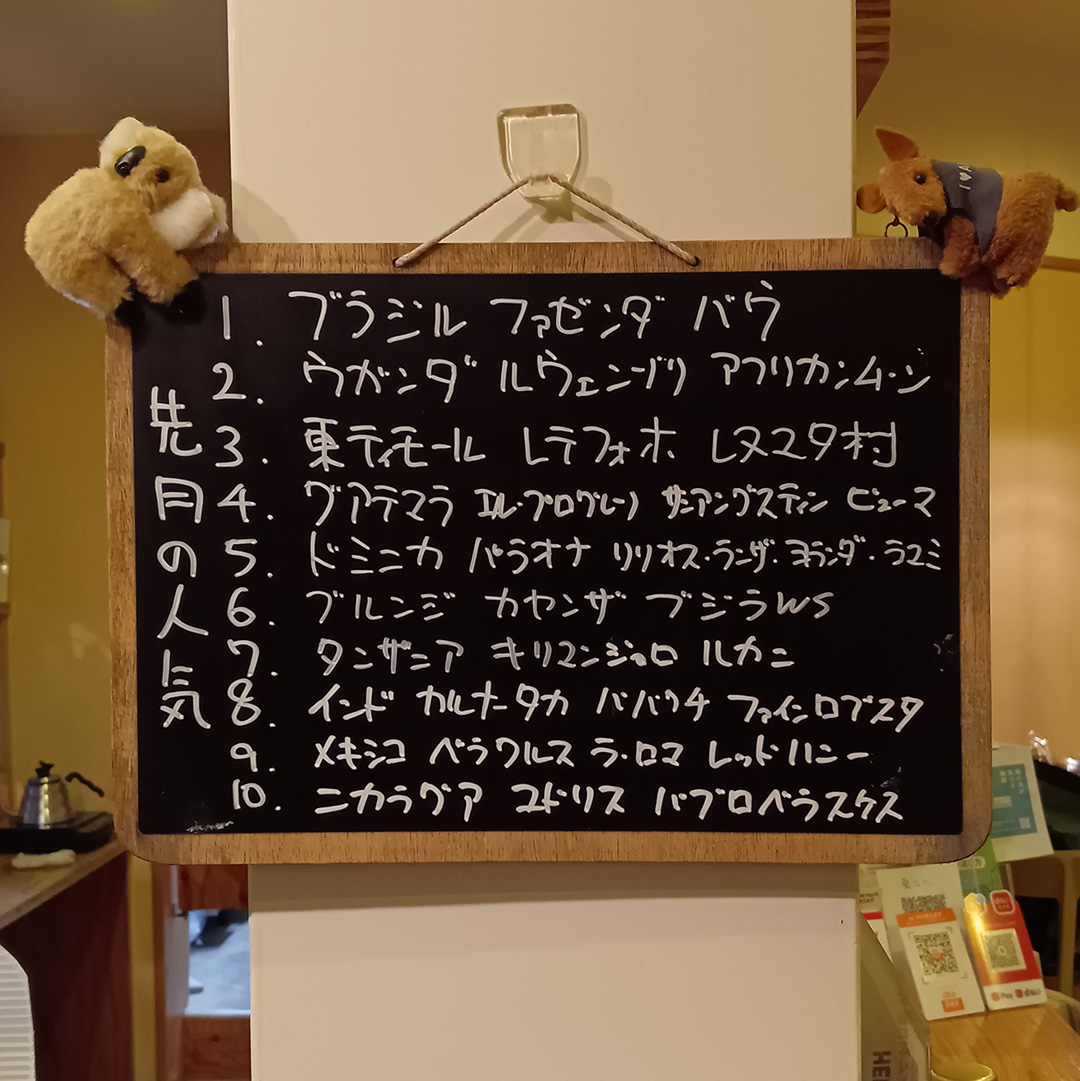 先月の人気
1. ブラジル ファゼンダ バウ
2. ウガンダ ルウェンゾリ アフリカンムーン
3. 東ティモール レテフォホ レヌスタ村
4. グアテマラ エル・プログレソ サンアングスティン ピューマ
5. ドミニカ バラオナ リリオス・ランザ・ヨランダ・ラスミ
6. ブルンジ カヤンザ ブジラWS
7. タンザニア キリマンジャロ ルカニ
8. インド カルナータカ ババウチ ファインロブスタ
9. メキシコ ベラクルス ラ・ロマ レッドハニー
10. ニカラグア マドリス パブロベラスケス
I ♥ A
Pay d払い
HE